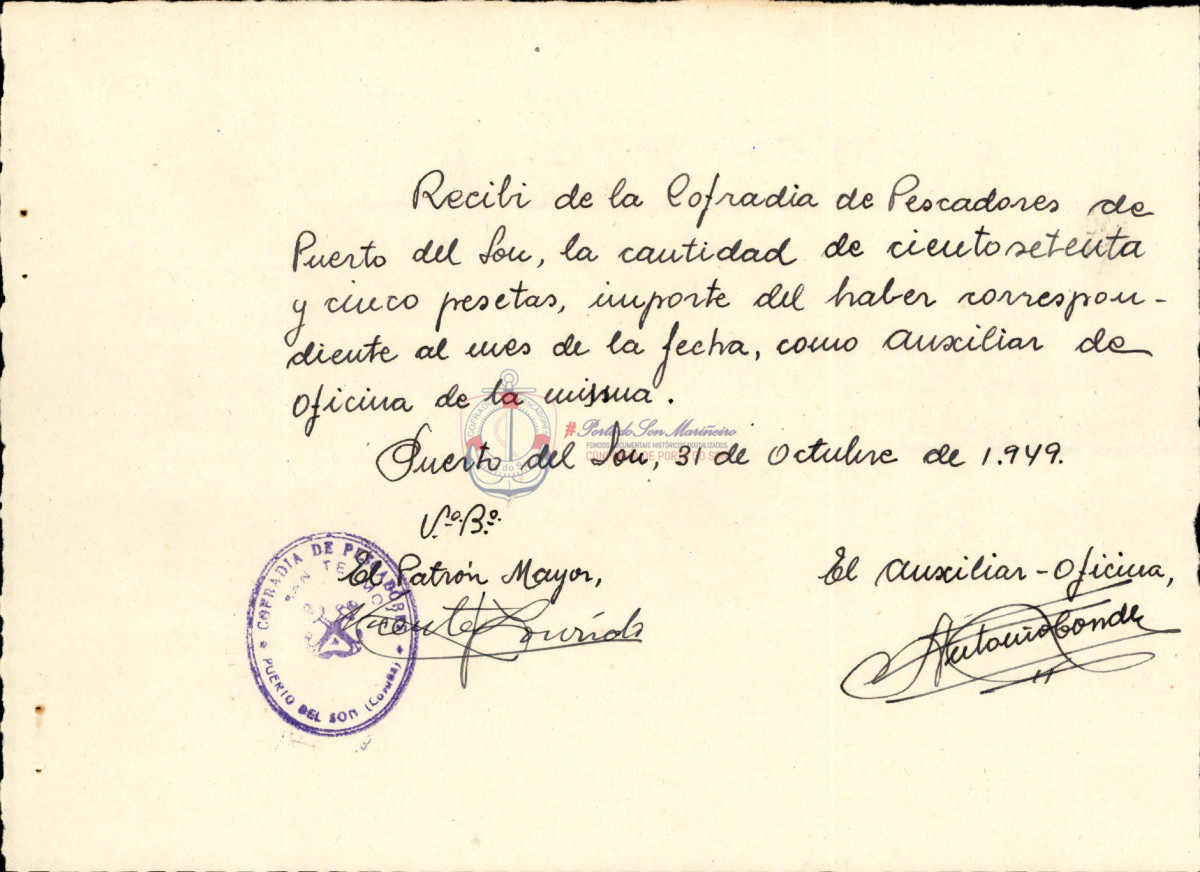 Recibi de la Cofradia de Pescadores de
Puerto del Son, la cantidad de ciento setenta
y cinco pesetas, importe del haber correspon-
diente al mes de la fecha, como auxiliar de
oficina de la misma.
#Porto do Son Mariñeiro
FONDOS DOCUMENTAIS HISTÓRICOS DIXITALIZADOS
CONFRARÍA DE PORTO DO SON
Puerto del Son, 31 de Octubre de 1.949.
V.º B.º
El Patrón Mayor,
El Auxiliar-Oficina,
Vicente
Antonio Conde
COFRADIA DE PESCADORES
SAN TELMO
PUERTO DEL SON (Coruña)